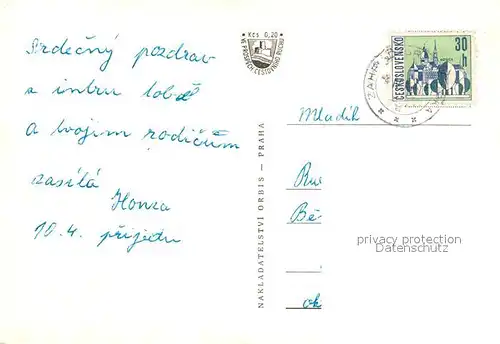 Srdečný pozdrav
a tobě
a tvojim rodičům
zasílá
Honza
10.4. přijedu
Kčs 0,20
VE PROSPĚCH CESTOVNÍHO RUCHU
NAKLADATELSTVÍ ORBIS — PRAHA
ČESKOSLOVENSKO
30
h
ZÁH
Mladík
Ru
Bě
ok
privacy protection
Datenschutz